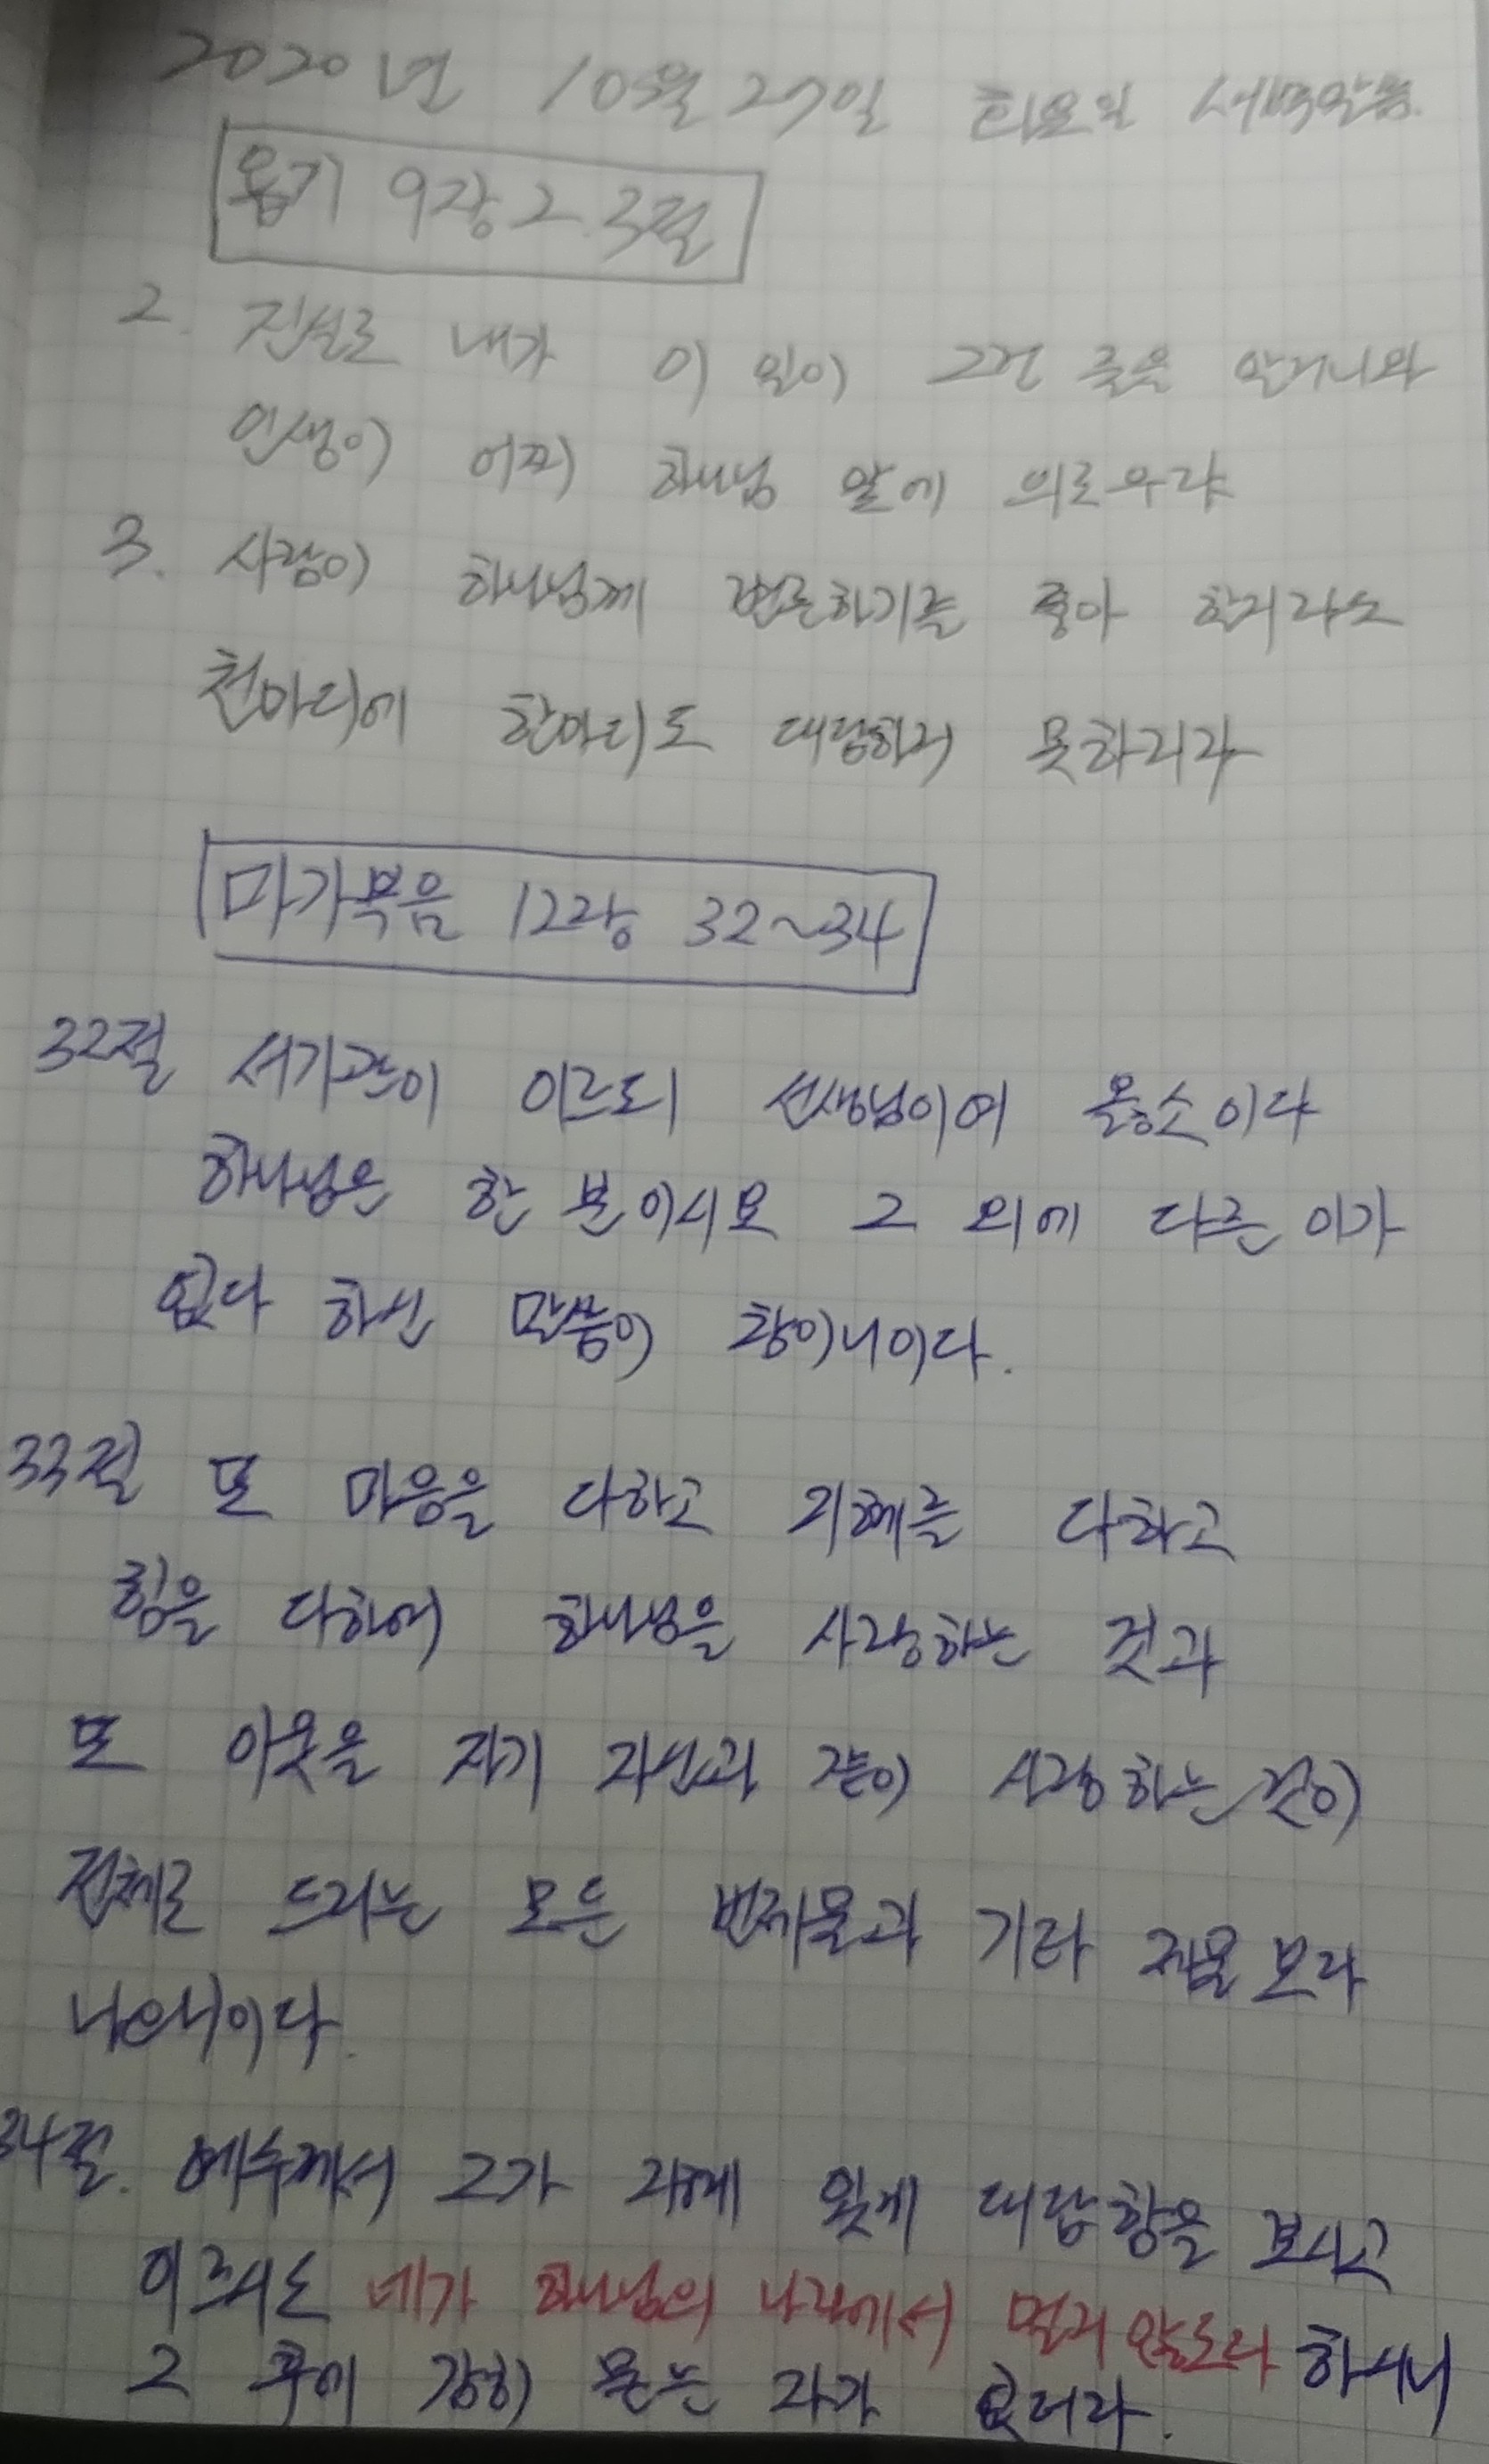 2020년 10월 27일 화요일 새벽말씀.
욥기 9장 2.3절
2. 진실로 내가 이 일이 그런 줄을 알거니와
인생이 어찌 하나님 앞에 의로우랴
3. 사람이 하나님께 변론하기를 좋아 할지라도
천마디에 한마디도 대답하지 못하리라
마가복음 12장 32~34
32절 서기관이 이르되 선생님이여 옳소이다
하나님은 한 분이시요 그 외에 다른 이가
없다 하신 말씀이 참이니이다.
33절 또 마음을 다하고 지혜를 다하고
힘을 다하여 하나님을 사랑하는 것과
또 이웃을 자기 자신과 같이 사랑하는 것이
전체로 드리는 모든 번제물과 기타 제물 보다
나으니이다.
34절. 예수께서 그가 지혜 있게 대답함을 보시고
이르시되 네가 하나님의 나라에서 멀지 않도다 하시니
그 후에 감히 묻는 자가 없더라.